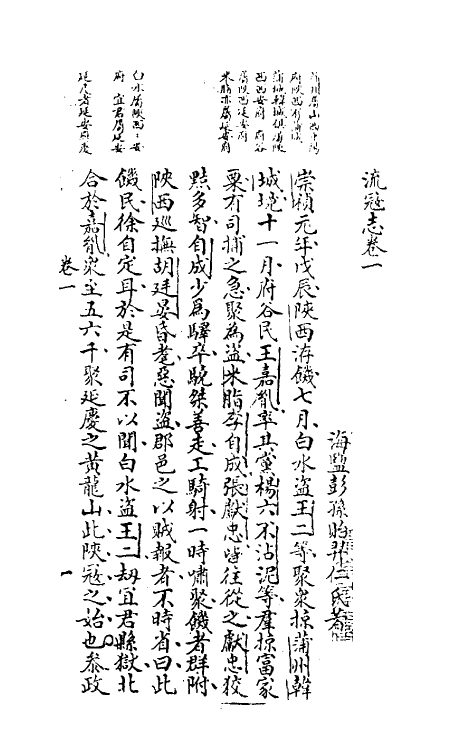 流寇志卷一
海鹽彭孫貽羿仁氏著
崇禎元年戊辰陝西洊饑七月白水盗王二等聚衆掠蒲州韓
城境十一月府谷民王嘉胤率其黨楊六不沾泥等羣掠富家
粟有司捕之急聚為盗米脂李自成張獻忠皆往從之獻忠狡
黠多智自成少為驛卒驍桀善走工騎射一時嘯聚饑者群附
陝西巡撫胡廷晏昏耄惡聞盗郡邑之以賊報者不時省曰此
饑民徐自定耳於是有司不以聞白水盗王二刼宜君縣獄北
合於嘉胤衆至五六千聚延慶之黄龍山此陝寇之始也叅政
蒲州屬山西平陽
府陝西有蒲城
蒲城韓城俱屬陝
西西安府 府谷
屬陝西延安府
米脂亦屬延安府
白水屬陝西西安
府 宜君屬延安
延慶者延安府慶
卷一
一